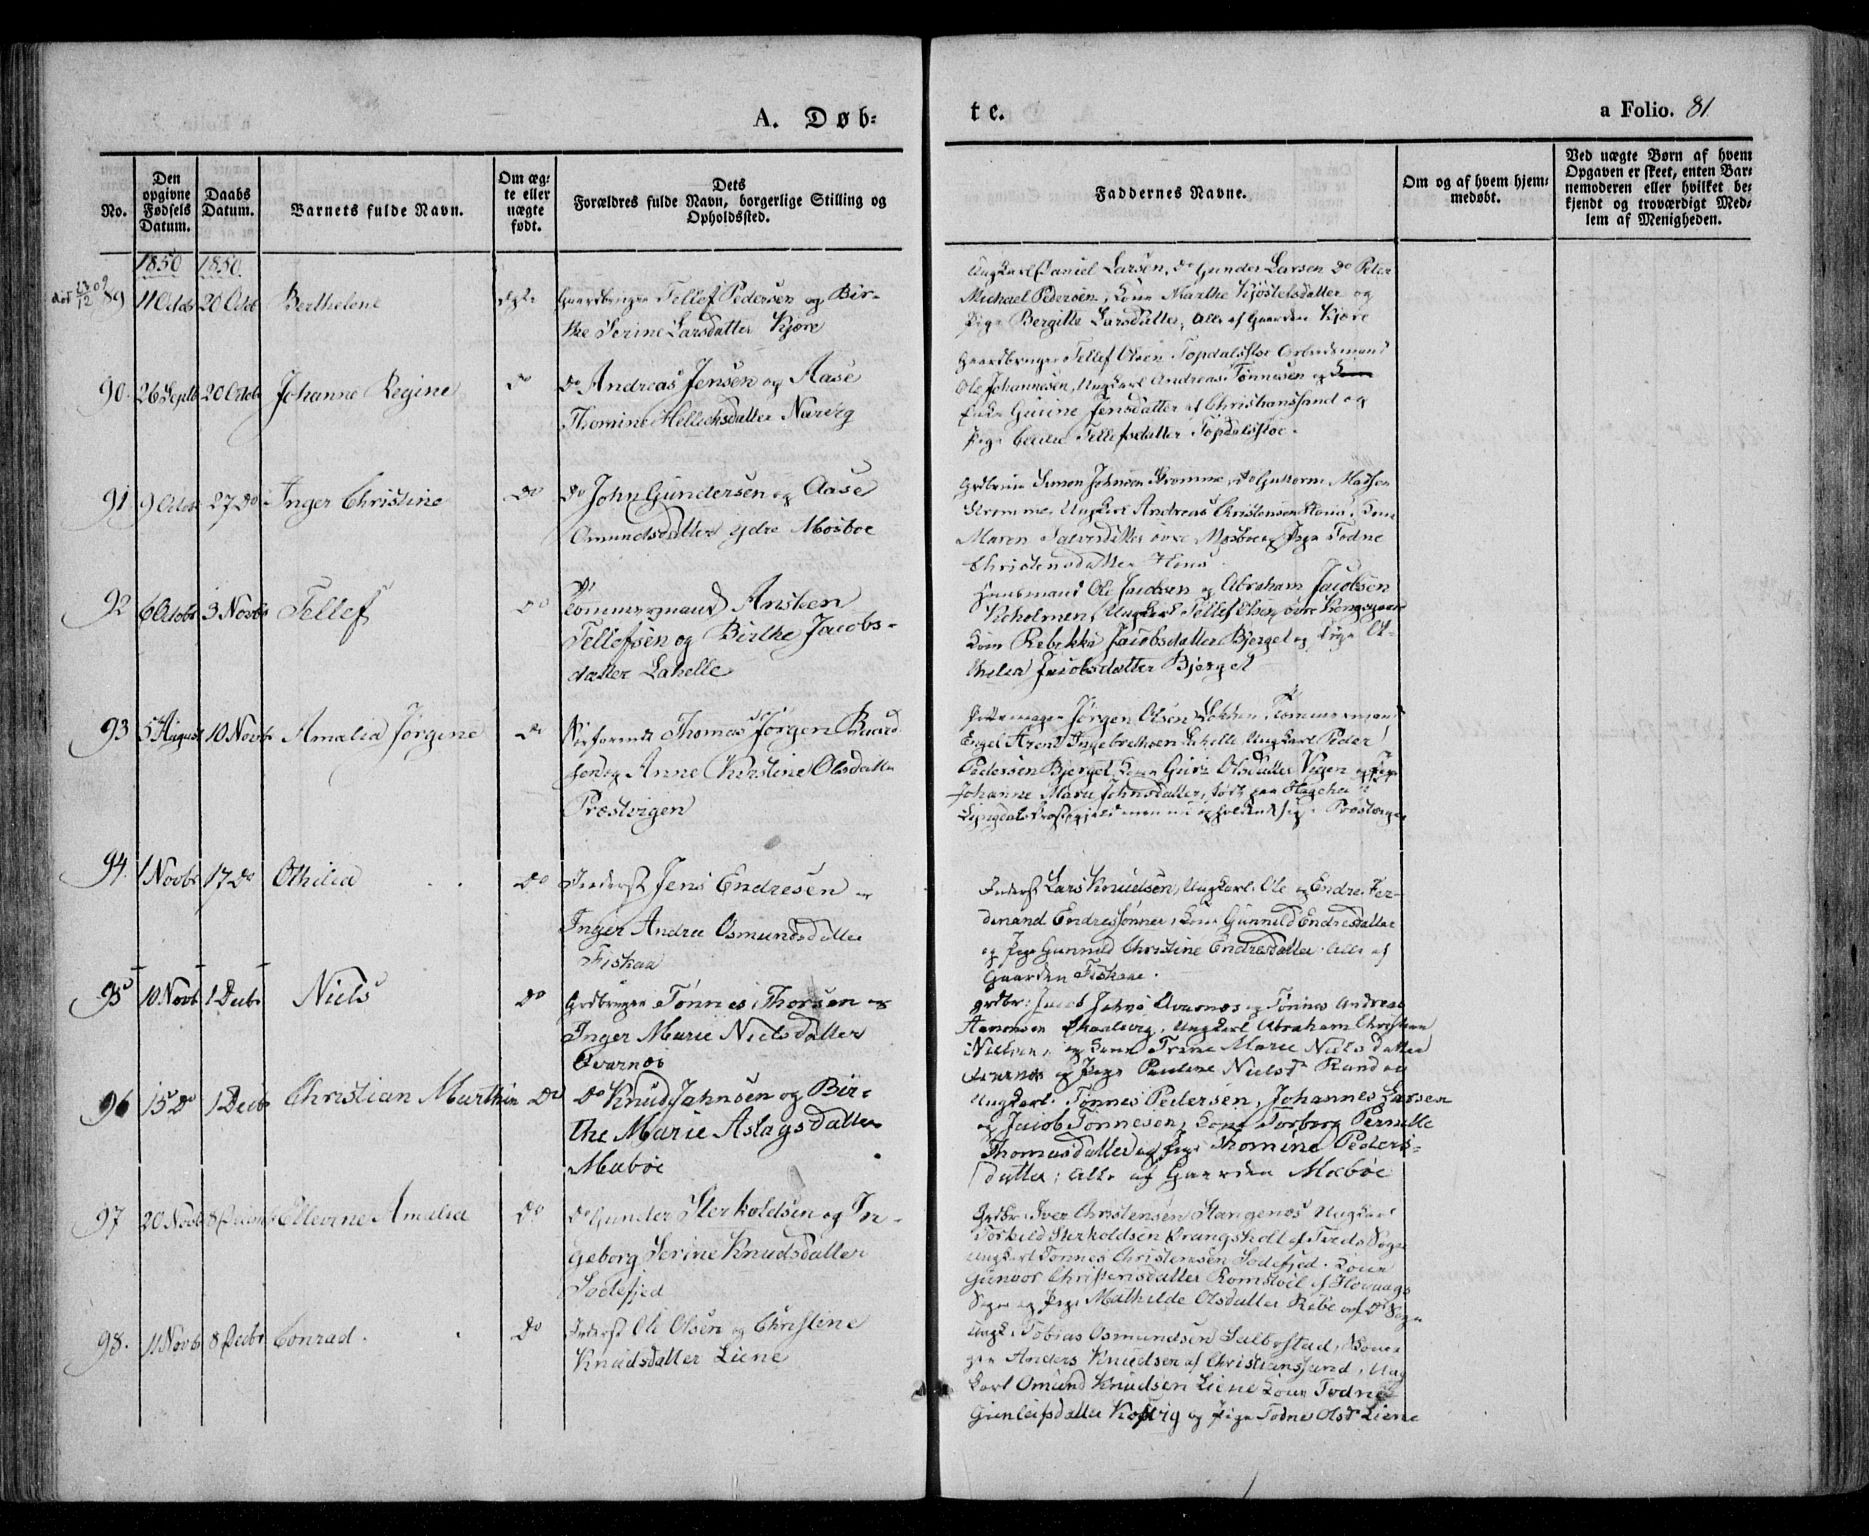 A. Døb-
te.
a Folio. 81
No.
Den
opgivne
Fødsels
Datum.
Daabs
Datum.
Barnets fulde Navn.
Om æg-
te eller
uægte
født.
Dets
Forældres fulde Navn, borgerlige Stilling og
Opholdssted.
Faddernes Navne.
Om og af hvem hjem-
medøbt.
Ved uægte Børn af hvem
Opgaven er skeet, enten Bar-
nemoderen eller hvilket be-
kjendt og troværdigt Med-
lem af Menigheden.
1850 1850
89 11 Octbr 20 Octbr Berthelene Egte Gaardbruger Tellef Pedersen og Bir-
the Serine Larsdatter Kjøre
Ungkarl Daniel Larsen, do Gunder Larsen do Peter
Michael Pedersen, Kone Marthe Kjøstelsdatter og
Pige Bergitte Larsdatter, Alle af Gaarden Kjøre
90. 26 Septb 20 Octbr Johanne Regine do do Andreas Jensen og Aase
Thomine Hellichsdatter Narvig
Gaardbruger Tellef Olsen Topdalsfloe Arbeidsmand
Ole Johannesen, Ungkarl Andreas Tønnesen og
Enke Gurine Jensdatter af Christianssand og
Pige Tellefsdatter Topdalsfloe.
91 9 Octbr 27 do Inger Christine do do John Gundersen og Aase
Omundsdatter ydre Mosboe
Grdbruger Simon Johnsen Stromme, do Guttorm Madsen
Stromme, Ungkarl Andreas Christensen Hona. Kone
Maren Salvesdatter øvre Mosboe og Pige Todne
Christensdatter
92 6 Octobr 3 Novbr Tellef do
Tømmermand Ansteen
Tellefsen og Birthe Jacobs-
datter Lahelle
Huusmand Ole Jacobsen og Abraham Jacobsen
Kirholmen, Ungkarl Tellef Olsen øvre
Kone Rebekka Jacobsdatter Bjerget og Pige O-
thilia Jacobsdatter Bjerget
93 5 August 10 Novbr Amalia Jørgine do Thomas Jørgen
og Anne Kirstine Olsdatter
Præstvigen
Jørgen Olsen Tømmermand
Engel Arent Ingebrethsen Lahelle, Ungkarl Peder
Pedersen Bjerget, Kone Olsdatter Vigen og Pige
Johanne Marie Johnsdatter, født paa
Lyngdals Præstegjeld men nu opholdende sig i Præstvigen
94. 1 Novbr 17 do Othilia do Inderst Jens Endresen og
Inger Andrea Osmundsdatter
Fiskaa
Inderst Lars Knudsen, Ungkarl Ole og Endre Fer-
dinand Endresønner, Kone Gunnild Endresdatter
og Pige Gunnild Christine Endresdatter. Alle af
Gaarden Fiskaae.
95 10 Novb 1 Decbr Niels do Grdbruger Tønnes Thorsen og
Inger Marie Nielsdatter
Qvarnæs
Grdbr: Jacob Qvarnæs og Tønnes Andreas
Aanonsen Ungkarl Abraham Christian
Nielsen, og Kone Trine Marie Nielsdatter
Qvarnæs og Pige Pauline Nielsdr Randøe
96 15 do 1 Decbr Christian Marthin do do Knud Jahnsen og Bir-
the Marie Aslagsdatter
Mæbøe
Ungkarl: Tønnes Pedersen, Johannes Larsen
og Jacob Tønnesen, Kone Torborg Pernille
Thomasdatter og Pige Thomine Peders-
datter, alle af Gaarden Mæbøe
97 20 Novb 8 Ellevine Amalia do do Gunder Sterkoldsen og In-
geborg Serine Knudsdatter
Sodefjed
Grdbr: Iver Christensen Stangenæs Ungkarl
Torkild Sterkoldsen Krangsholt af Tveds Sogn
Ungkarl Tonnes Christensen Sodefjed. Kone
Gunvor Christensdatter af Høvaags
Sogn og Pige Mathilde Olsdatter Ribe af do Sogn
98. 11 Novbr 8 Decbr Conrad. do Inderst Ole Olsen og Christine
Knudsdatter Liene
Ungk: Tobias Osmundsen
Anders Knudsen af Christianssand, Ung
karl Omund Knudsen Liene Kone Todne
Gunleifsdatter Kosvig og Pige Todne Olsdr Liene